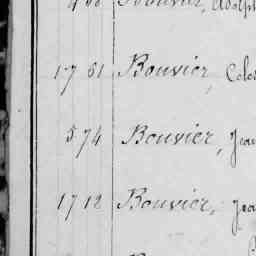 Bouvier, Adolph
1761 Bouvier, Colo
574 Bouvier, Jean
1712 Bouvier, Jea